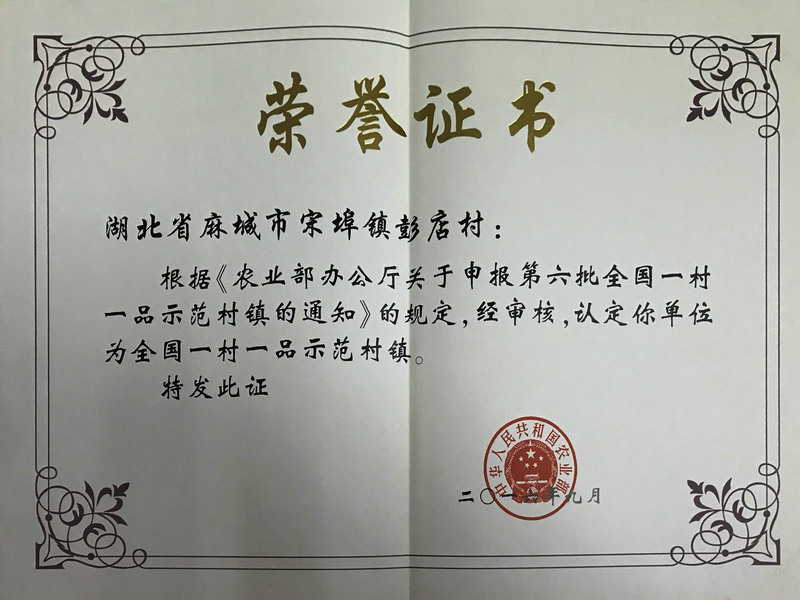 荣誉证书
湖北省麻城市宋埠镇彭店村：
根据《农业部办公厅关于申报第六批全国一村
一品示范村镇的通知》的规定，经审核，认定你单位
为全国一村一品示范村镇。
特发此证
中华人民共和国农业部
二〇一六年九月